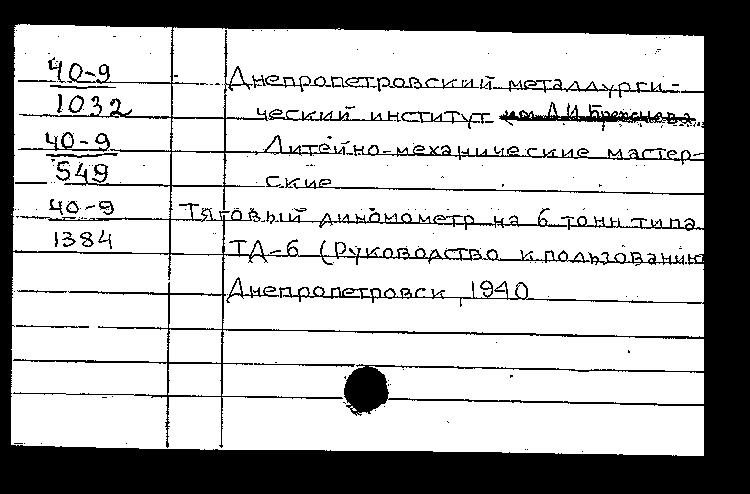 40-9
1032
40-9
549
40-9
1384
Днепропетровский металлурги-
ческий институт им. Л.И. Брежнева
Литейно-механические мастер-
ские
Тяговый динамометр на 6 тонн типа
ТД-6 (Руководство к пользованию
Днепропетровск, 1940